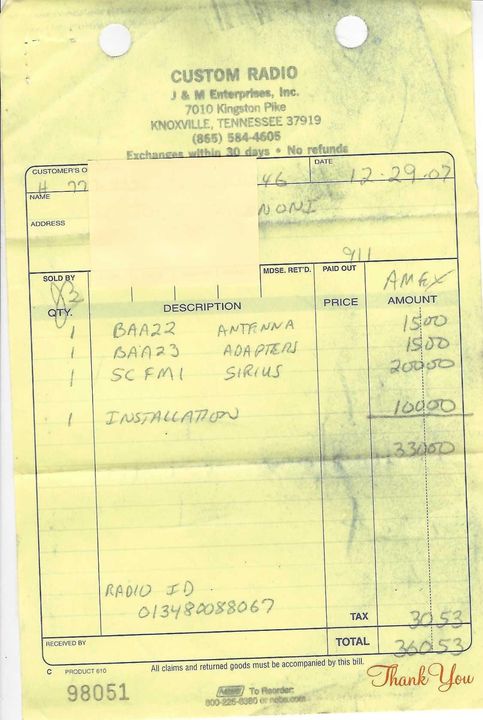 CUSTOM RADIO
J & M Enterprises, Inc.
7010 Kingston Pike
KNOXVILLE, TENNESSEE 37919
(865) 584-4605
Exchanges within 30 days • No refunds
CUSTOMER'S O DATE
H 77 46 12-29-07
NAME
NONI
ADDRESS
911
SOLD BY MDSE. RET'D. PAID OUT
AMEX
QTY. DESCRIPTION PRICE AMOUNT
1 BAA22 ANTENNA 1500
1 BAA23 ADAPTERS 1500
1 SCFM1 SIRIUS 20000
1 INSTALLATION 10000
33000
RADIO ID
013480088067
TAX 30.53
RECEIVED BY TOTAL 360.53
C PRODUCT 610 All claims and returned goods must be accompanied by this bill.
Thank You
98051
To Reorder:
800-225-6380 or nebs.com